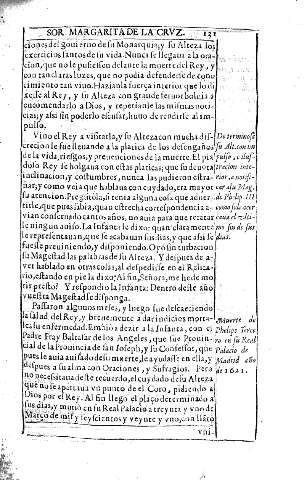 SOR MARGARITA DE LA CRVZ. 131
ciones del gouierno de su Monarquia, y su Alteza los
exercicios santos de su vida. Nunca se llegaua a la ora-
cion, que no le pusiessen delante la muerte del Rey, y
con tan claras luzes, que no podia defenderse de cono-
cimiento tan viuo. Hazianla fuerça interior que lo di
xesse al Rey, y su Alteza con grande temor boluia a
encomendarlo a Dios, y repetianle las mismas noti-
cias; y assi sin poderlo escusar, huuo de rendirse al im-
pulso.
Vino el Rey a visitarla, y su Alteza con mucha dis-
crecion le fue lleuando a la platica de los desengaños
de la vida, riesgos, y preuenciones de la muerte. El pia
doso Rey se holgaua con estas platicas; que su deuota
inclinacion, y costumbres, nunca las pudieron estra-
ñar, y como veia que hablaua con cuydado, era mayor
su atencion. Preguntóla, si tenia alguna cosa que aduer
tirle, que pues sabia, quan estrecha correspondencia a-
uian conseruado tantos años, no auia para que recatar
le ningun auiso. La Infanta le dixo: quan claramente
se representauan, que se acabauan sus dias, y que assi se
fuesse preuiniendo, y disponiendo. Oyó sin turbacion
su Magestad las palabras de su Alteza. Y despues de a-
uer hablado en otras cosas, al despedirse en el Relica-
rio, estando en pie la dixo: Al fin, Señora, me he de mo
rir presto? Y respondio la Infanta: Dentro deste año
vuestra Magestad se disponga.
Passaron algunos meses, y luego fue descaeciendo
la salud del Rey, y breuemente a dar indicios morta-
les su enfermedad. Embió a dezir a la Infanta, con el
Padre Fray Baltasar de los Angeles, que fue Prouin-
cial de la Prouincia de san Joseph, y su Confessor, que
pues le auia auisado de su muerte, le ayudasse en ella, y
despues a su alma con Oraciones, y Sufragios. Pero
no necessitaua deste recuerdo, el cuydado de su Alteza
que no se apartaua vn punto de el Coro, pidiendo a
Dios por el Rey. Al fin llegò el plaço determinado a
sus dias, y murió en su Real Palacio a treynta y vno de
Março de mil y seyscientos y veynte y vno, con llãto
vni-
Determinose
su Alt. con im
pulso, e ilus-
tracion inte-
rior, a notifi-
car a su Mag.
de Phelip. III
como se acer-
caua el vlti-
mo fin de sus
dias.
Muerte de
Phelipe Terce
ro en su Real
Palacio de
Madrid año
de 1621.